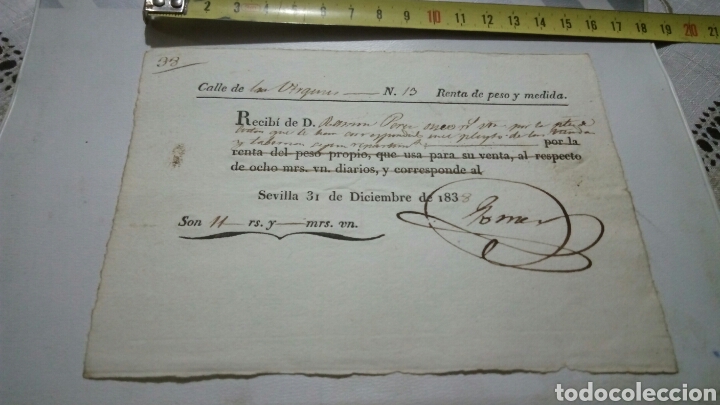 2 3 4 5 6 7 8 9 10 11 12 13 14 15 16 17 18 19 20 21
93
Calle de las Virgenes — N. 13 Renta de peso y medida.
Recibí de D. Ramon Perez once r.s vn por la
que le han correspondido en el pleyto de las
y tabernas segun por la
renta del peso propio, que usa para su venta, al respecto
de ocho mrs. vn. diarios, y corresponde al
Sevilla 31 de Diciembre de 1838
Son 11 rs. y — mrs. vn.
todocoleccion